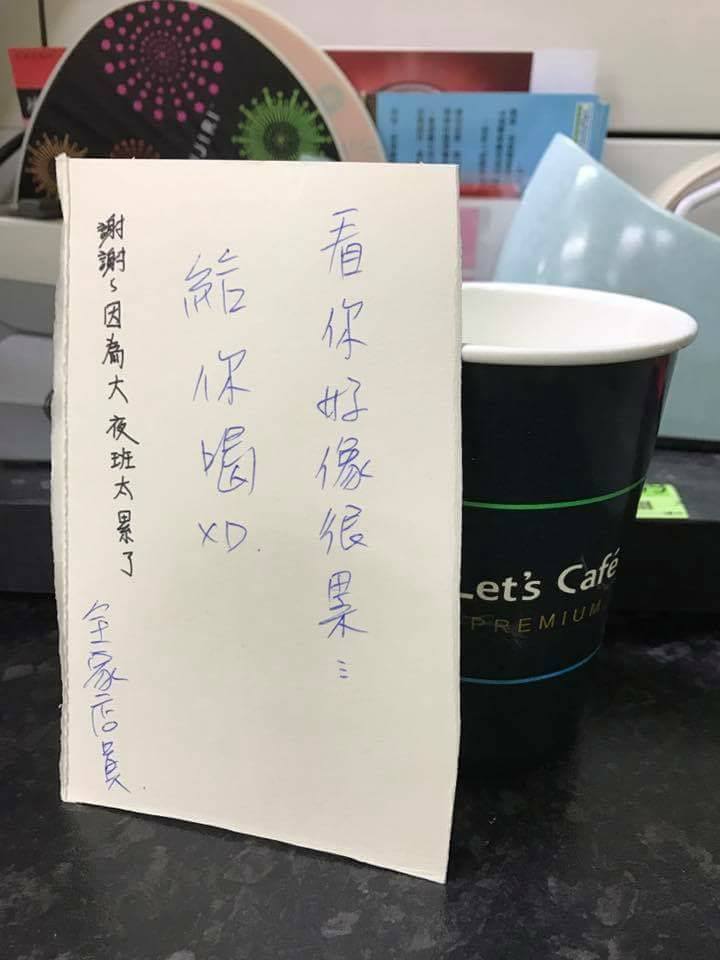 看你好像很累…
給你喝XD.
謝謝~因為大夜班太累了
全家店員.
Let's Café
PREMIUM